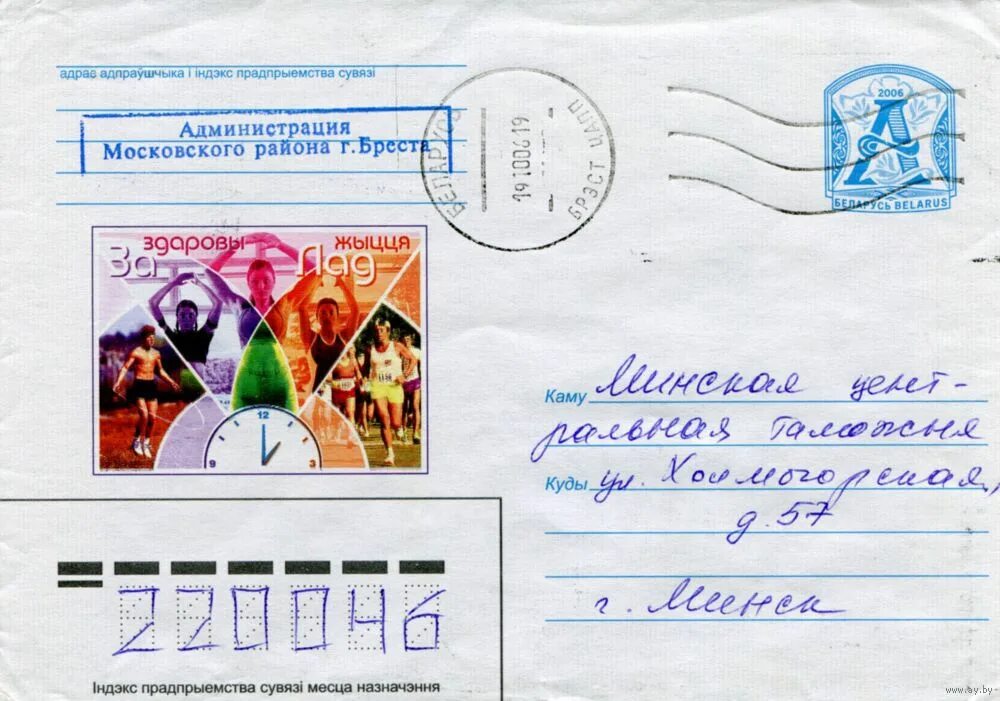 адрас адпраўшчыка і індэкс прадпрыемства сувязі
Администрация
Московского района г.Бреста
БЕЛАРУСЬ
БРЭСТ ЦАПП
2006
А
БЕЛАРУСЬ BELARUS
За здаровы Лад жыцця
12
9
3
Каму Минская цент-
ральная таможня
Куды ул. Холмогорская,
д. 57
г. Минск
220046
Індэкс прадпрыемства сувязі месца назначэння
www.ay.by